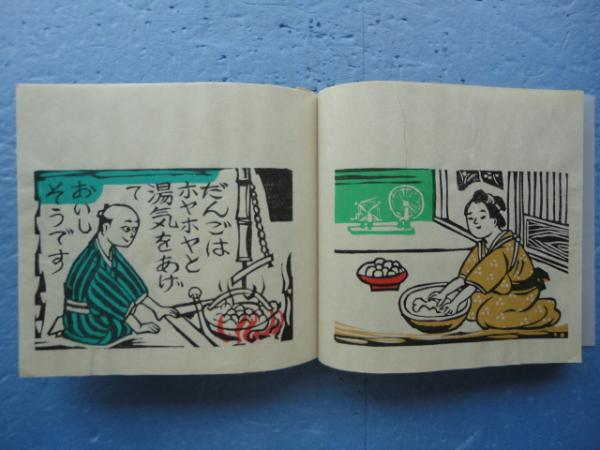 だんごは
ホヤホヤと
湯気をあげ
て
おいし
そうです